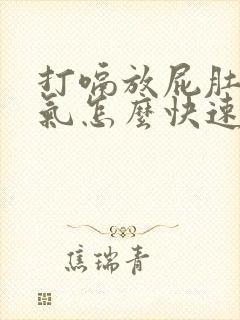 打嗝放屁肚
氣怎麼快速
焦瑞青